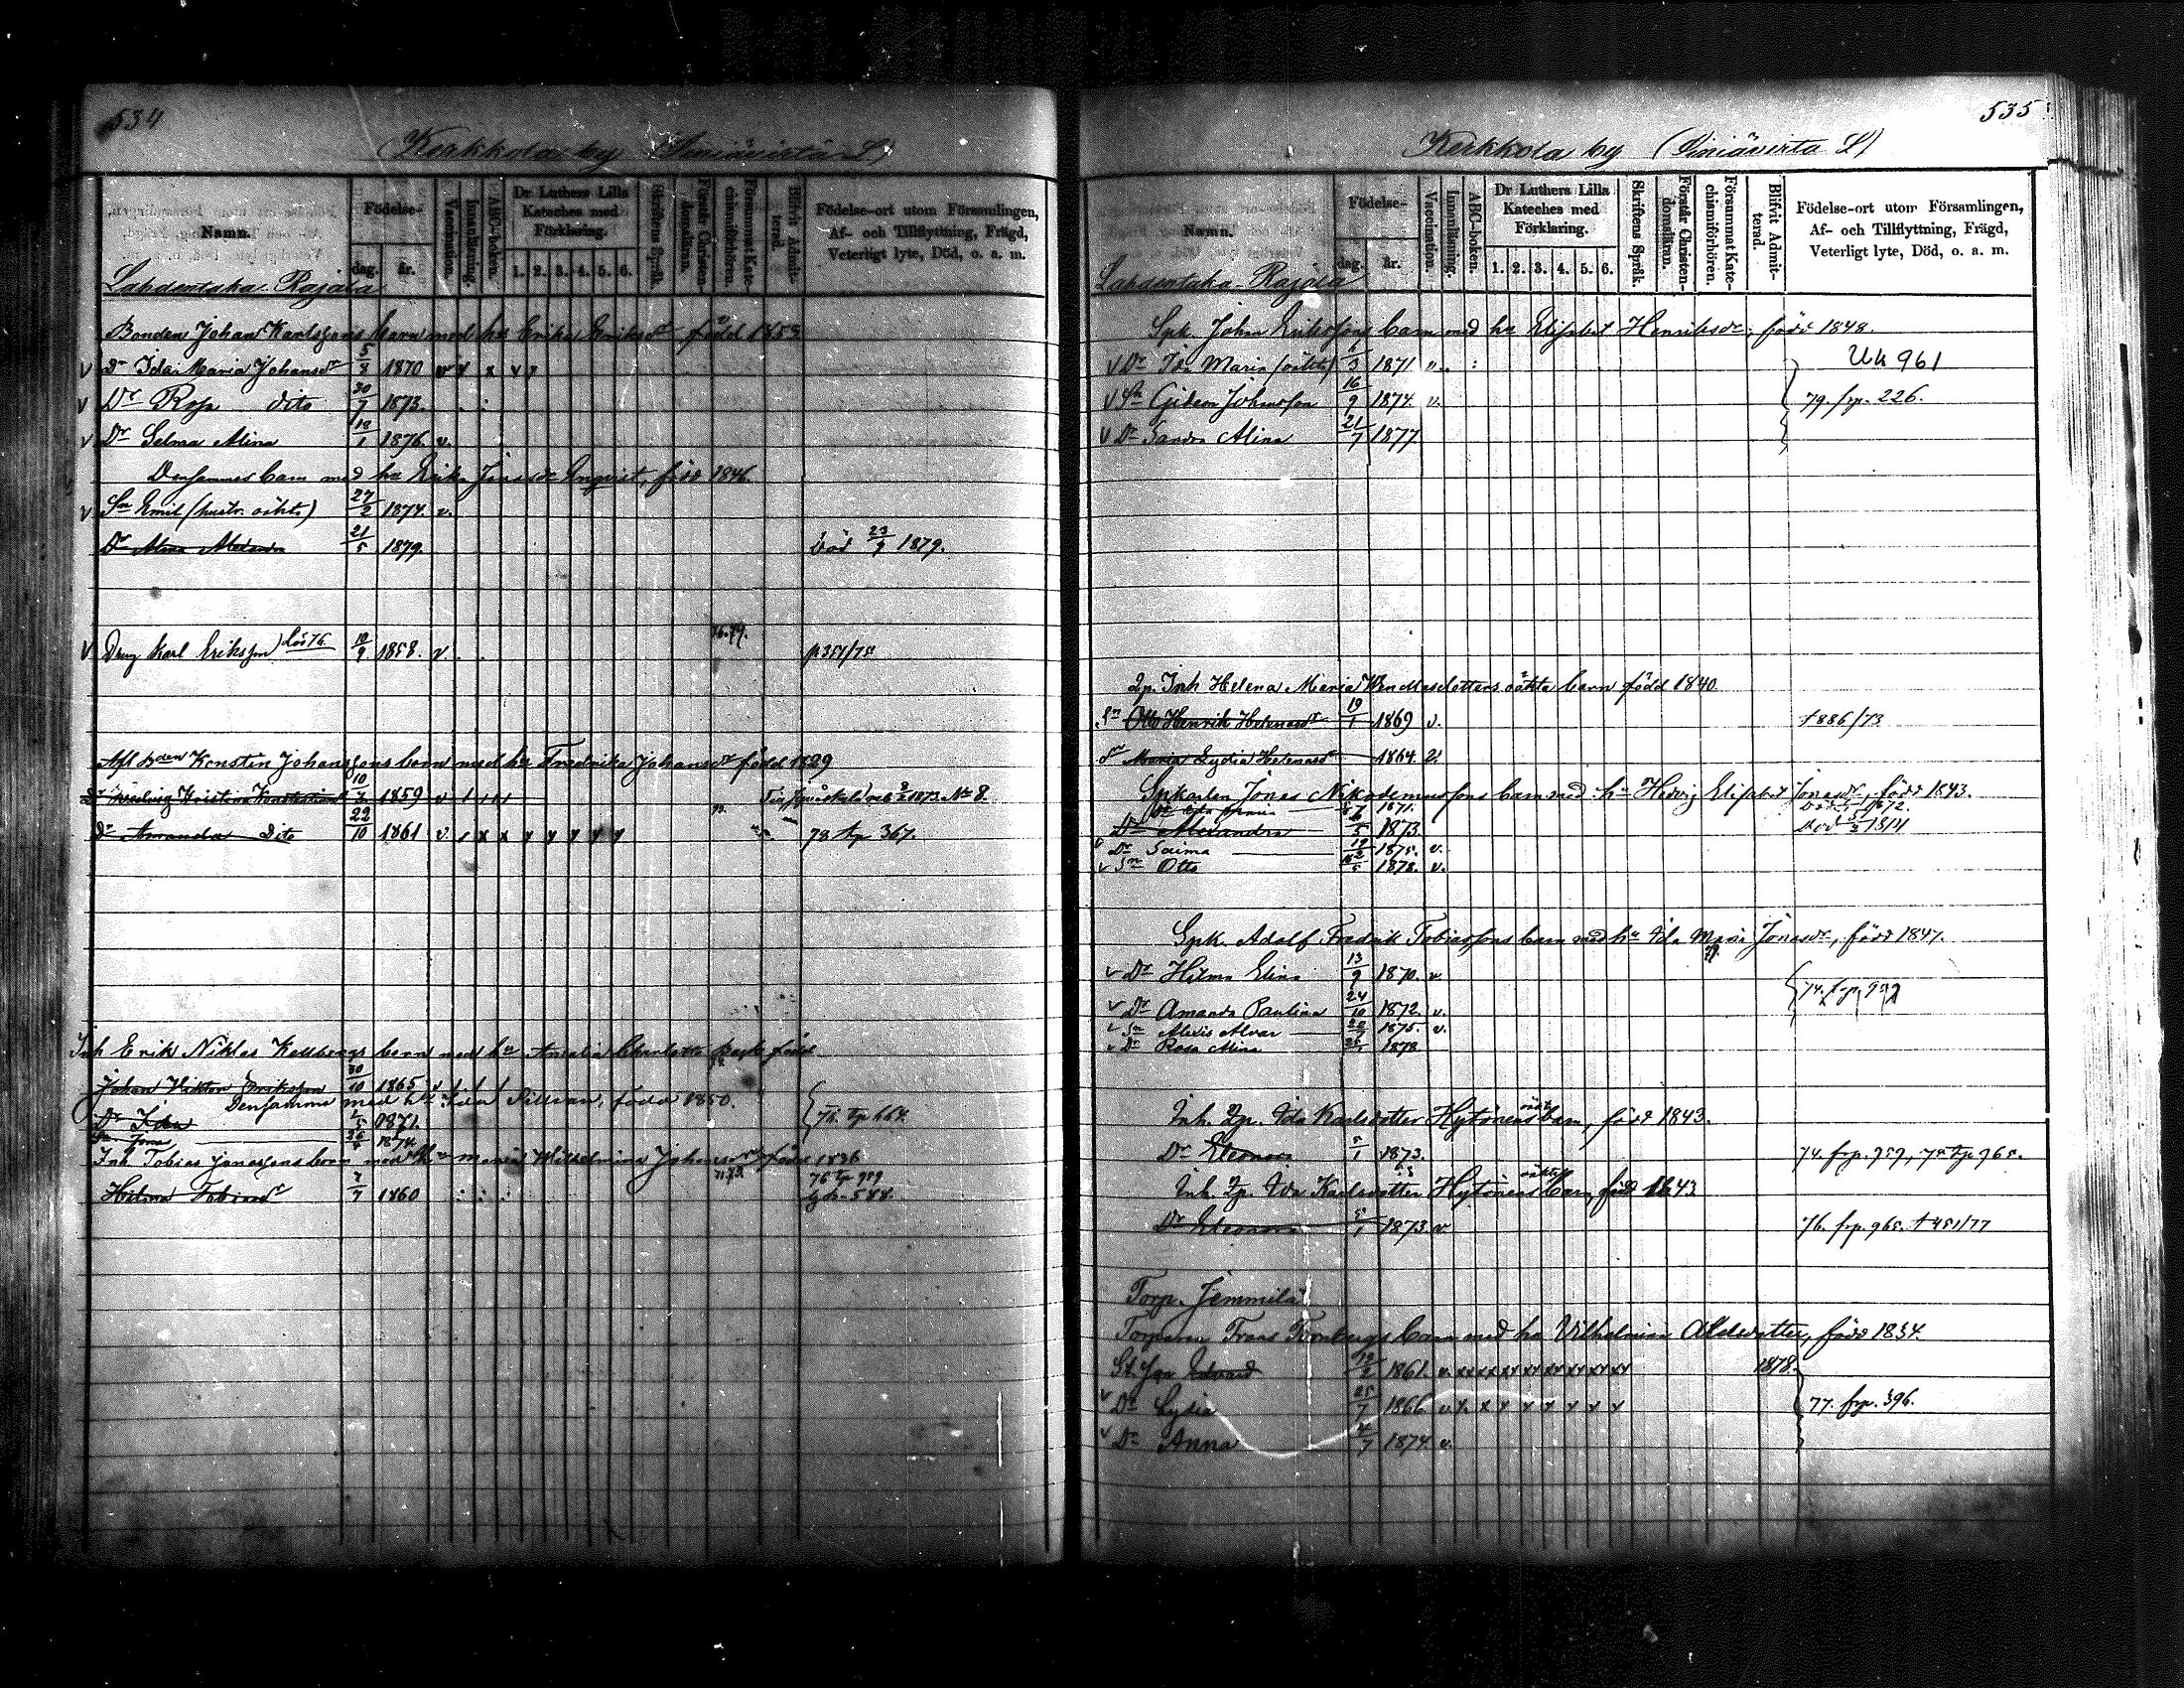 534
Kerkkola by (Siniävirta L)
Namn.
Födelse-
dag.
år.
Vaccination.
Innanläsning.
ABC-boken.
Dr Luthers Lilla
Kateches med
Förklaring.
1. 2. 3. 4. 5. 6.
Skriftens Språk.
Förstår Christen-
domsläran.
Försummat Kate-
chismiförhören.
Blifvit Admit-
terad.
Födelse-ort utom Församlingen,
Af- och Tillflyttning, Frägd,
Veterligt lyte, Död, o. a. m.
Lahdentaka Rajala
Bonden Johan Karlssons barn med hu Erika Eriksdr född 1853
v Dr Ida Maria Johansdr 5/8 1870 v x x v v
v Dr Rosa dito 30/7 1873.
v Dr Selma Alina 18/1 1876. v.
Densammes barn med hu Erika Jönsdr Enqvist, född 1846.
v Sn Emil (hustr. oäkta) 27/2 1874. v.
Dr Alma 21/5 1879. Död 23/9 1879.
76.79.
v Dräng Karl Eriksson 10/9 1858. v. p351/75
Afl Bden Konstin Johanssons barn med hu Fredrika Johansdr född 1829
Dr Hedvig Kristina 10/7 1859 v 1873 No 8.
Dr Amanda Dito 22/10 1861 v. x x x x x x x 78 tp 367.
Inh Erik Niklas Kellbergs barn med hu Amalia Charlotta född
Johan Viktor Eriksson 30/10 1865 v
Densamme med hu Ida född 1850.
Dr Ida 1/5 1871. 76. tp 664.
1874.
Inh Tobias Jonassons barn med hu Maria Wilhelmina Johansdr född 1836
76 tp 959
Hilma Tobiasdr 7/7 1860 588.
535
Kerkkola by (Siniävirta L)
Namn.
Födelse-
dag.
år.
Vaccination.
Innanläsning.
ABC-boken.
Dr Luthers Lilla
Kateches med
Förklaring.
1. 2. 3. 4. 5. 6.
Skriftens Språk.
Förstår Christen-
domsläran.
Försummat Kate-
chismiförhören.
Blifvit Admit-
terad.
Födelse-ort utom Församlingen,
Af- och Tillflyttning, Frägd,
Veterligt lyte, Död, o. a. m.
Lahdentaka Rajala
Spk. Johan Erikssons barn med hu Elisabet Henriksdr, född 1848.
Uk 961
v Dr Ida Maria (oäkta) 6/3 1871 v.
v Sn Gideon Johansson 16/9 1874. v. 79. frp. 226.
v Dr Sandra Alina 21/7 1877
Qp. Inh Helena Maria Wendlasdotters oäkta barn född 1840
Sn Otto Henrik Helenasson 19/1 1869 v. † 886/73
Maria Lydia Helenasdr 1864 v.
Spkarlen Jonas Nikodemussons barn med hu Hedvig Elisabet Jonasdr, född 1843.
1871. 1872.
Dr Alexandra 6/5 1873. Död
v Dr Saima 1875. v.
v Sn Otto 1878. v.
Spk. Adolf Fredrik Tobiassons barn med hu Ida Maria Jonasdr, född 1847.
v Dr Hilma Elina 13/9 1870. v
v Dr Amanda Paulina 24/10 1872. v. 74. frp. 992
v Sn Alexis Alvar 1875. v.
v Dr Rosa Alina 1878
Inh. Qp. Ida Karlsdotter Hytönens oäkta barn, född 1843.
Dr Eleonora 5/1 1873. 74. frp. 959, 75 tp. 965.
Inh. Qp. Ida Karlsdotter Hytönens oäkta barn, född 1843
Dr Eleonora 5/1 1873 v 76. frp. 965. † 451/77
Torp. Jemmilä
Torparen Frans Törnbergs barn med hu Vilhelmina Abelsdotter, född 1834.
Edvard 12/2 1861. v. xx xx xx xx xx xx xx xx 1878.
v Dr Lydia 25/7 1866 v. x. x x x x x x x 77. frp. 396.
v Dr Anna 4/7 1874 v.